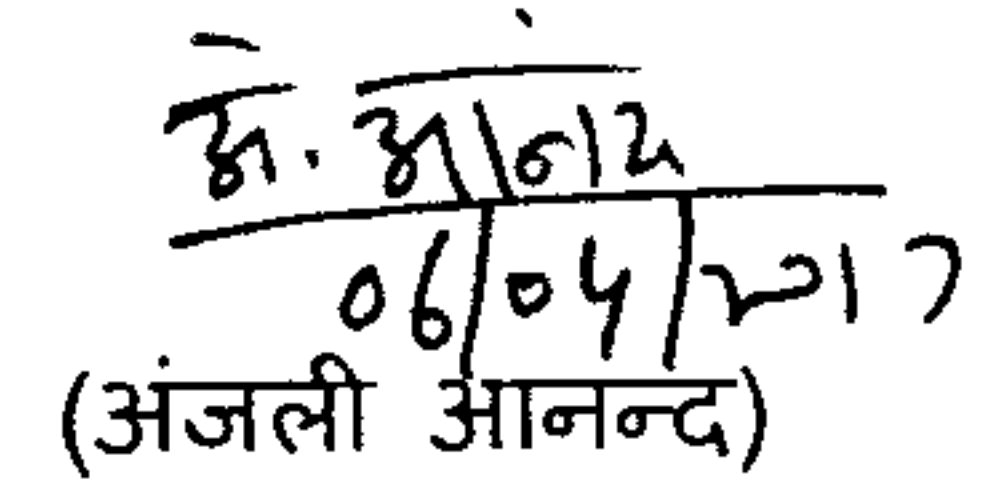 अं. आनंद
06/04/2017
(अंजली आनन्द)